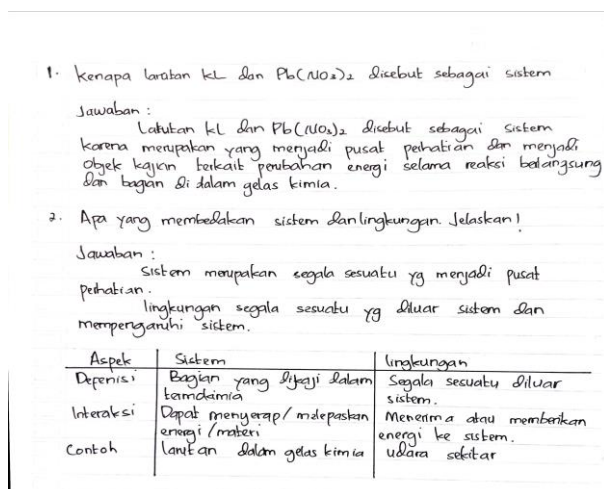 1. Kenapa larutan kL dan Pb(NO3)2 disebut sebagai sistem
Jawaban :
Latutan kL dan Pb(NO3)2 disebut sebagai sistem
karena merupakan yang menjadi pusat perhatian dan menjadi
objek kajian terkait perubahan energi selama reaksi berlangsung
dan bagian di dalam gelas kimia.
2. Apa yang membedakan sistem dan lingkungan. Jelaskan!
Jawaban :
Sistem merupakan segala sesuatu yg menjadi pusat
perhatian.
lingkungan segala sesuatu yg diluar sistem dan
mempengaruhi sistem.
Aspek Sistem lingkungan
Depenisi Bagian yang dikaji dalam Segala sesuatu diluar
termokimia sistem.
Interaksi Dapat menyerap/melepaskan Menerima atau memberikan
energi/materi energi ke sistem.
Contoh larutan dalam gelas kimia udara sekitar